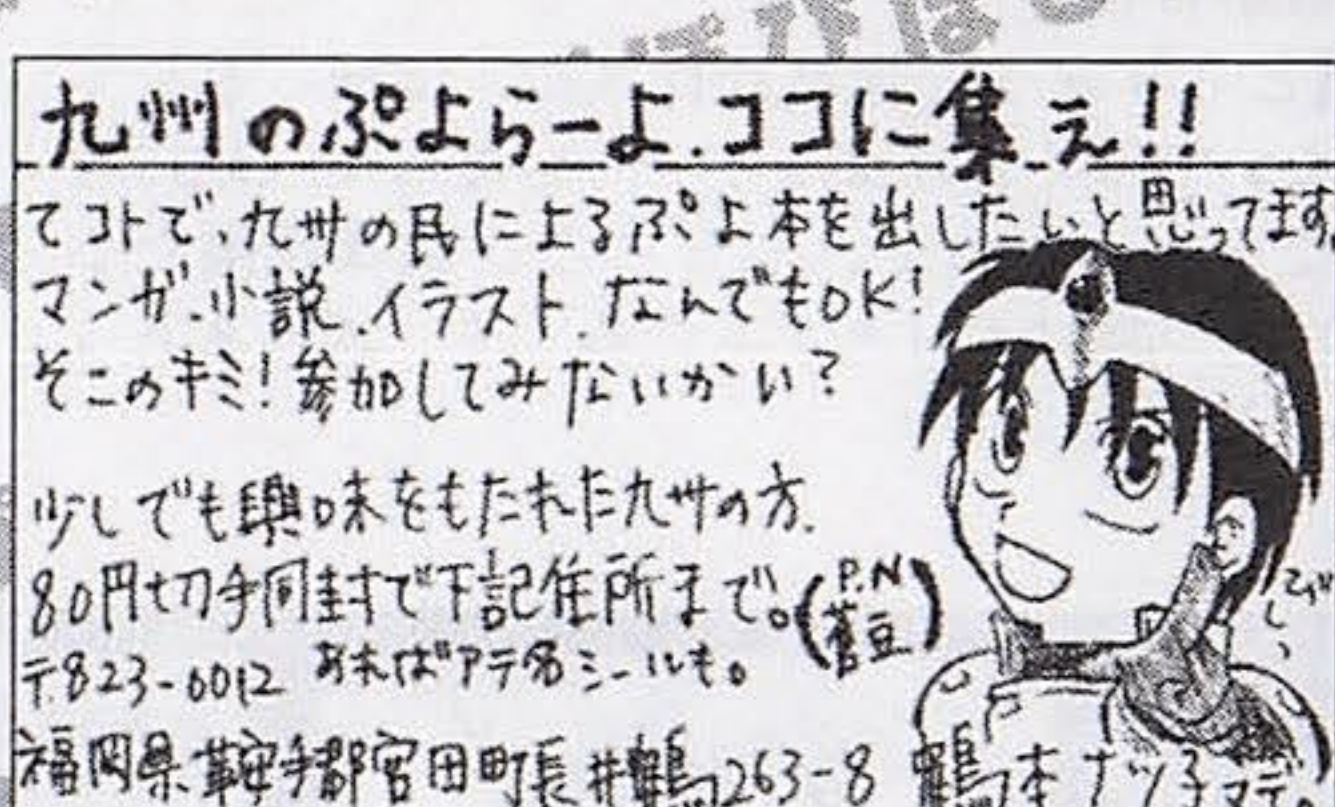 九州のぷよらーよ、ココに集え!!
てコトで、九州の民によるぷよ本を出したいと思ってます。
マンガ、小説、イラスト、なんでもOK!
そこのキミ!参加してみないかい?
少しでも興味をもたれた九州の方、
80円切手同封で下記住所まで。(P.N
あればアテ名シールも。
〒823-0012
福岡県鞍手郡宮田町長井鶴263-8 鶴本ナツ子マデ。